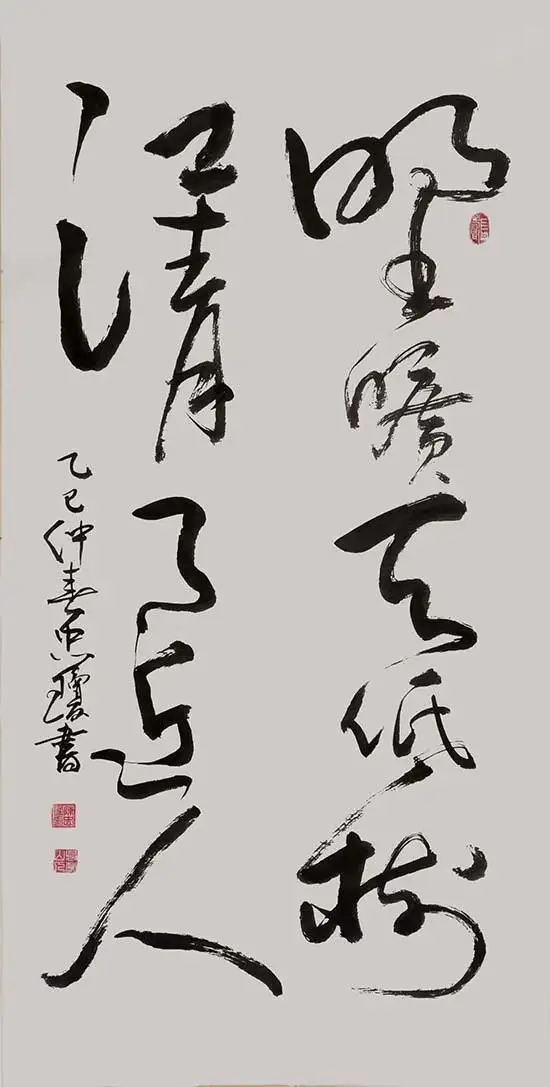 野曠天低樹
江清月近人
乙巳仲春忠瓊書